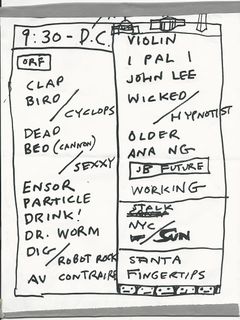 9:30 - D.C.
ORF
CLAP
BIRD / CYCLOPS
DEAD
BED (CANNON) / SEXXY
ENSOR
PARTICLE
DRINK!
DR. WORM
DIG / ROBOT ROCK
AV CONTRAIRE
VIOLIN
I PAL I
JOHN LEE
WICKED / HYPNOTIST
OLDER
ANA NG
JB FUTURE
WORKING
STALK
NYC / SUN
SANTA
FINGERTIPS